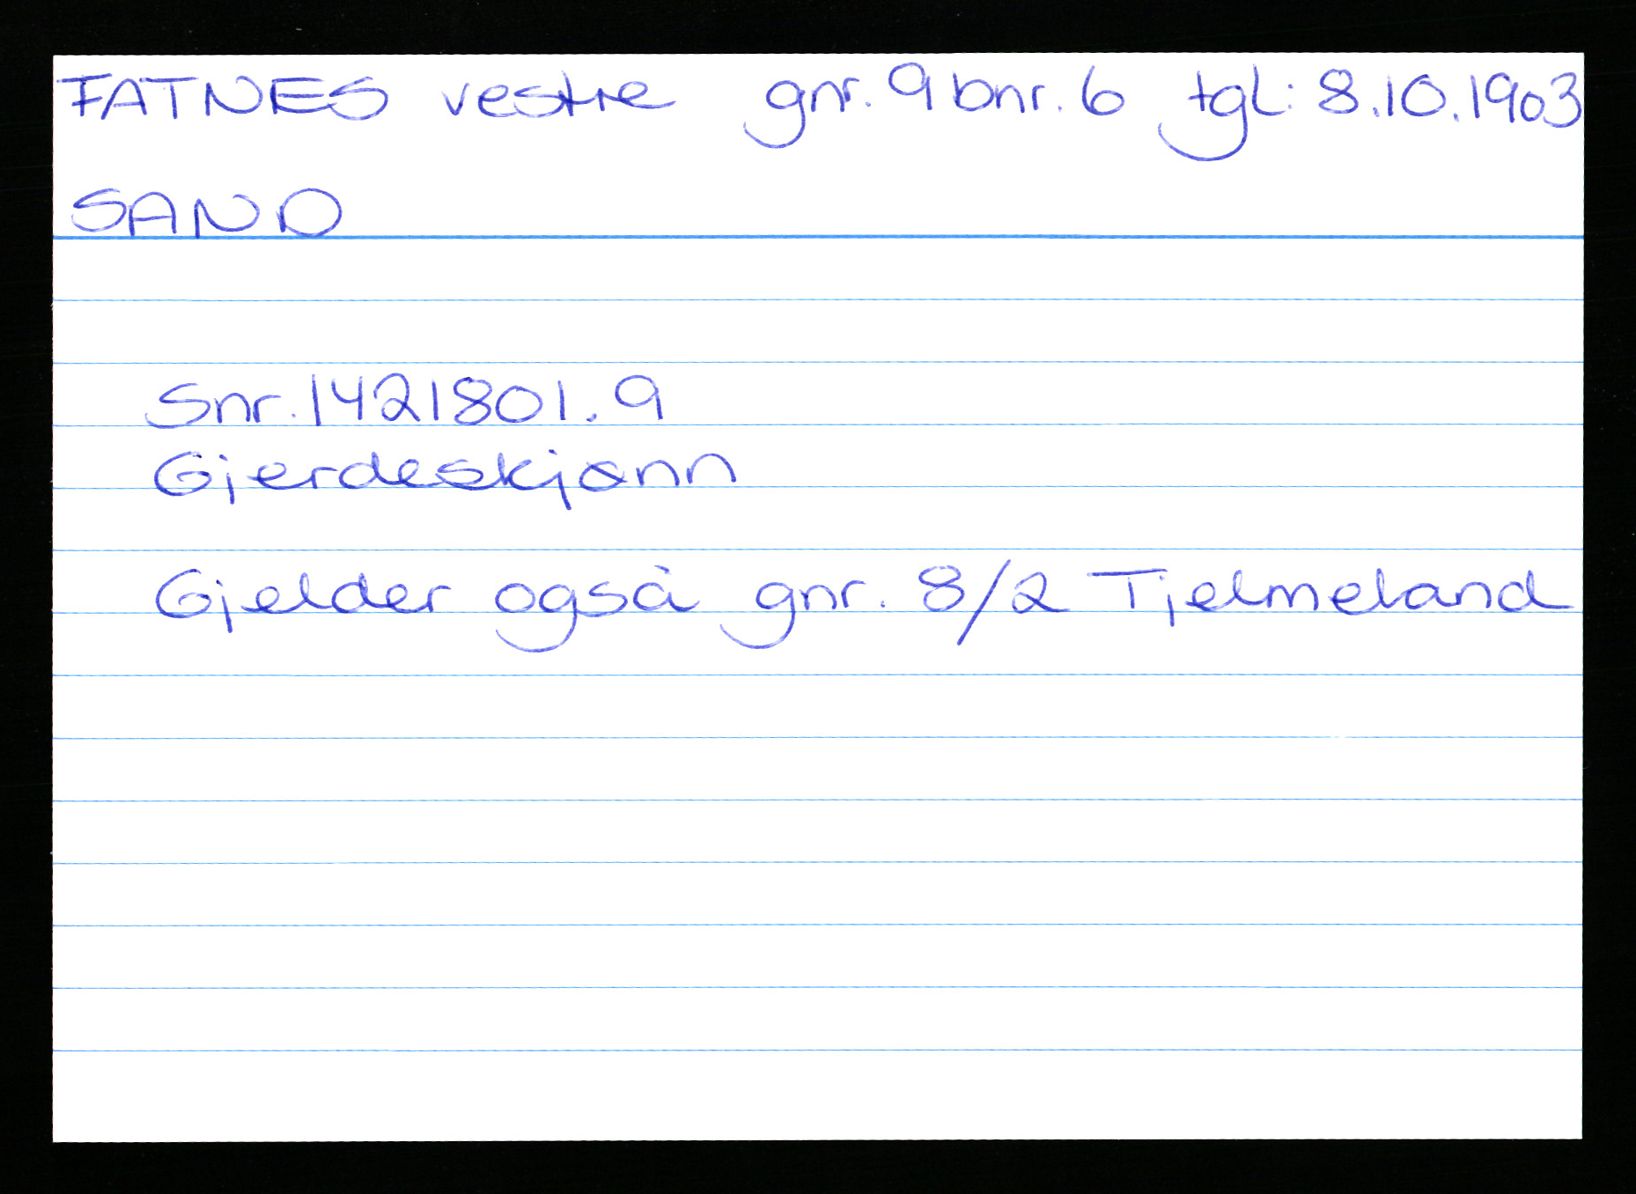 FATNES vestre gnr. 9 bnr. 6 tgl: 8.10.1903
SAND
Snr. 1421801.9
Gjerdeskjønn
Gjelder også gnr. 8/2 Tjelmeland